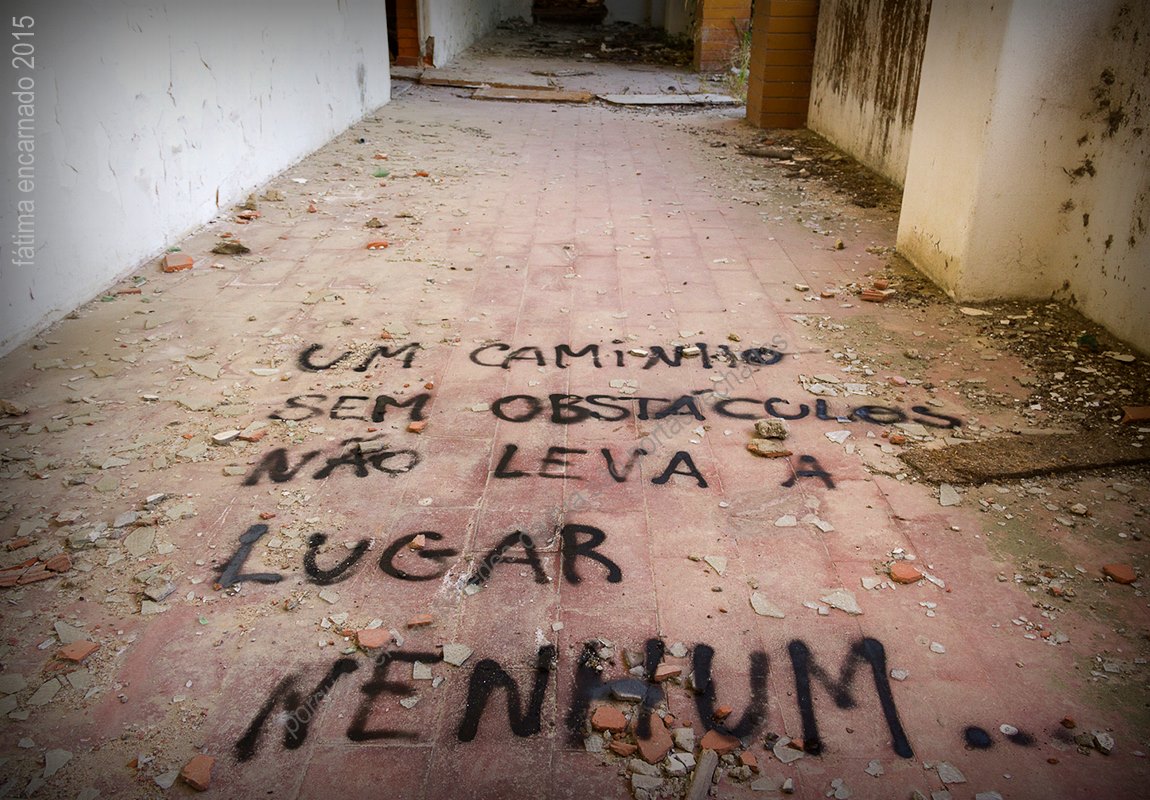 fátima encarnado 2015
UM CAMINHO
SEM OBSTACULOS
NÃO LEVA A
LUGAR
NENHUM...